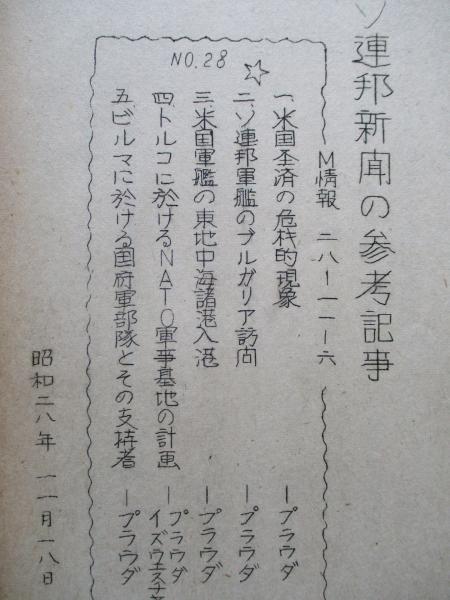 ソ連邦新聞の参考記事
M情報 二八ー一一ー六
NO.28 ☆
一、米国経済の危機的現象 ープラウダ
二、ソ連邦軍艦のブルガリア訪問 ープラウダ
三、米国軍艦の東地中海諸港入港 ープラウダ
四、トルコに於けるNATO軍事基地の計画 ープラウダ
イズヴェスチヤ
五、ビルマに於ける国府軍部隊とその支持者 ープラウダ
昭和二八年 一一月一八日